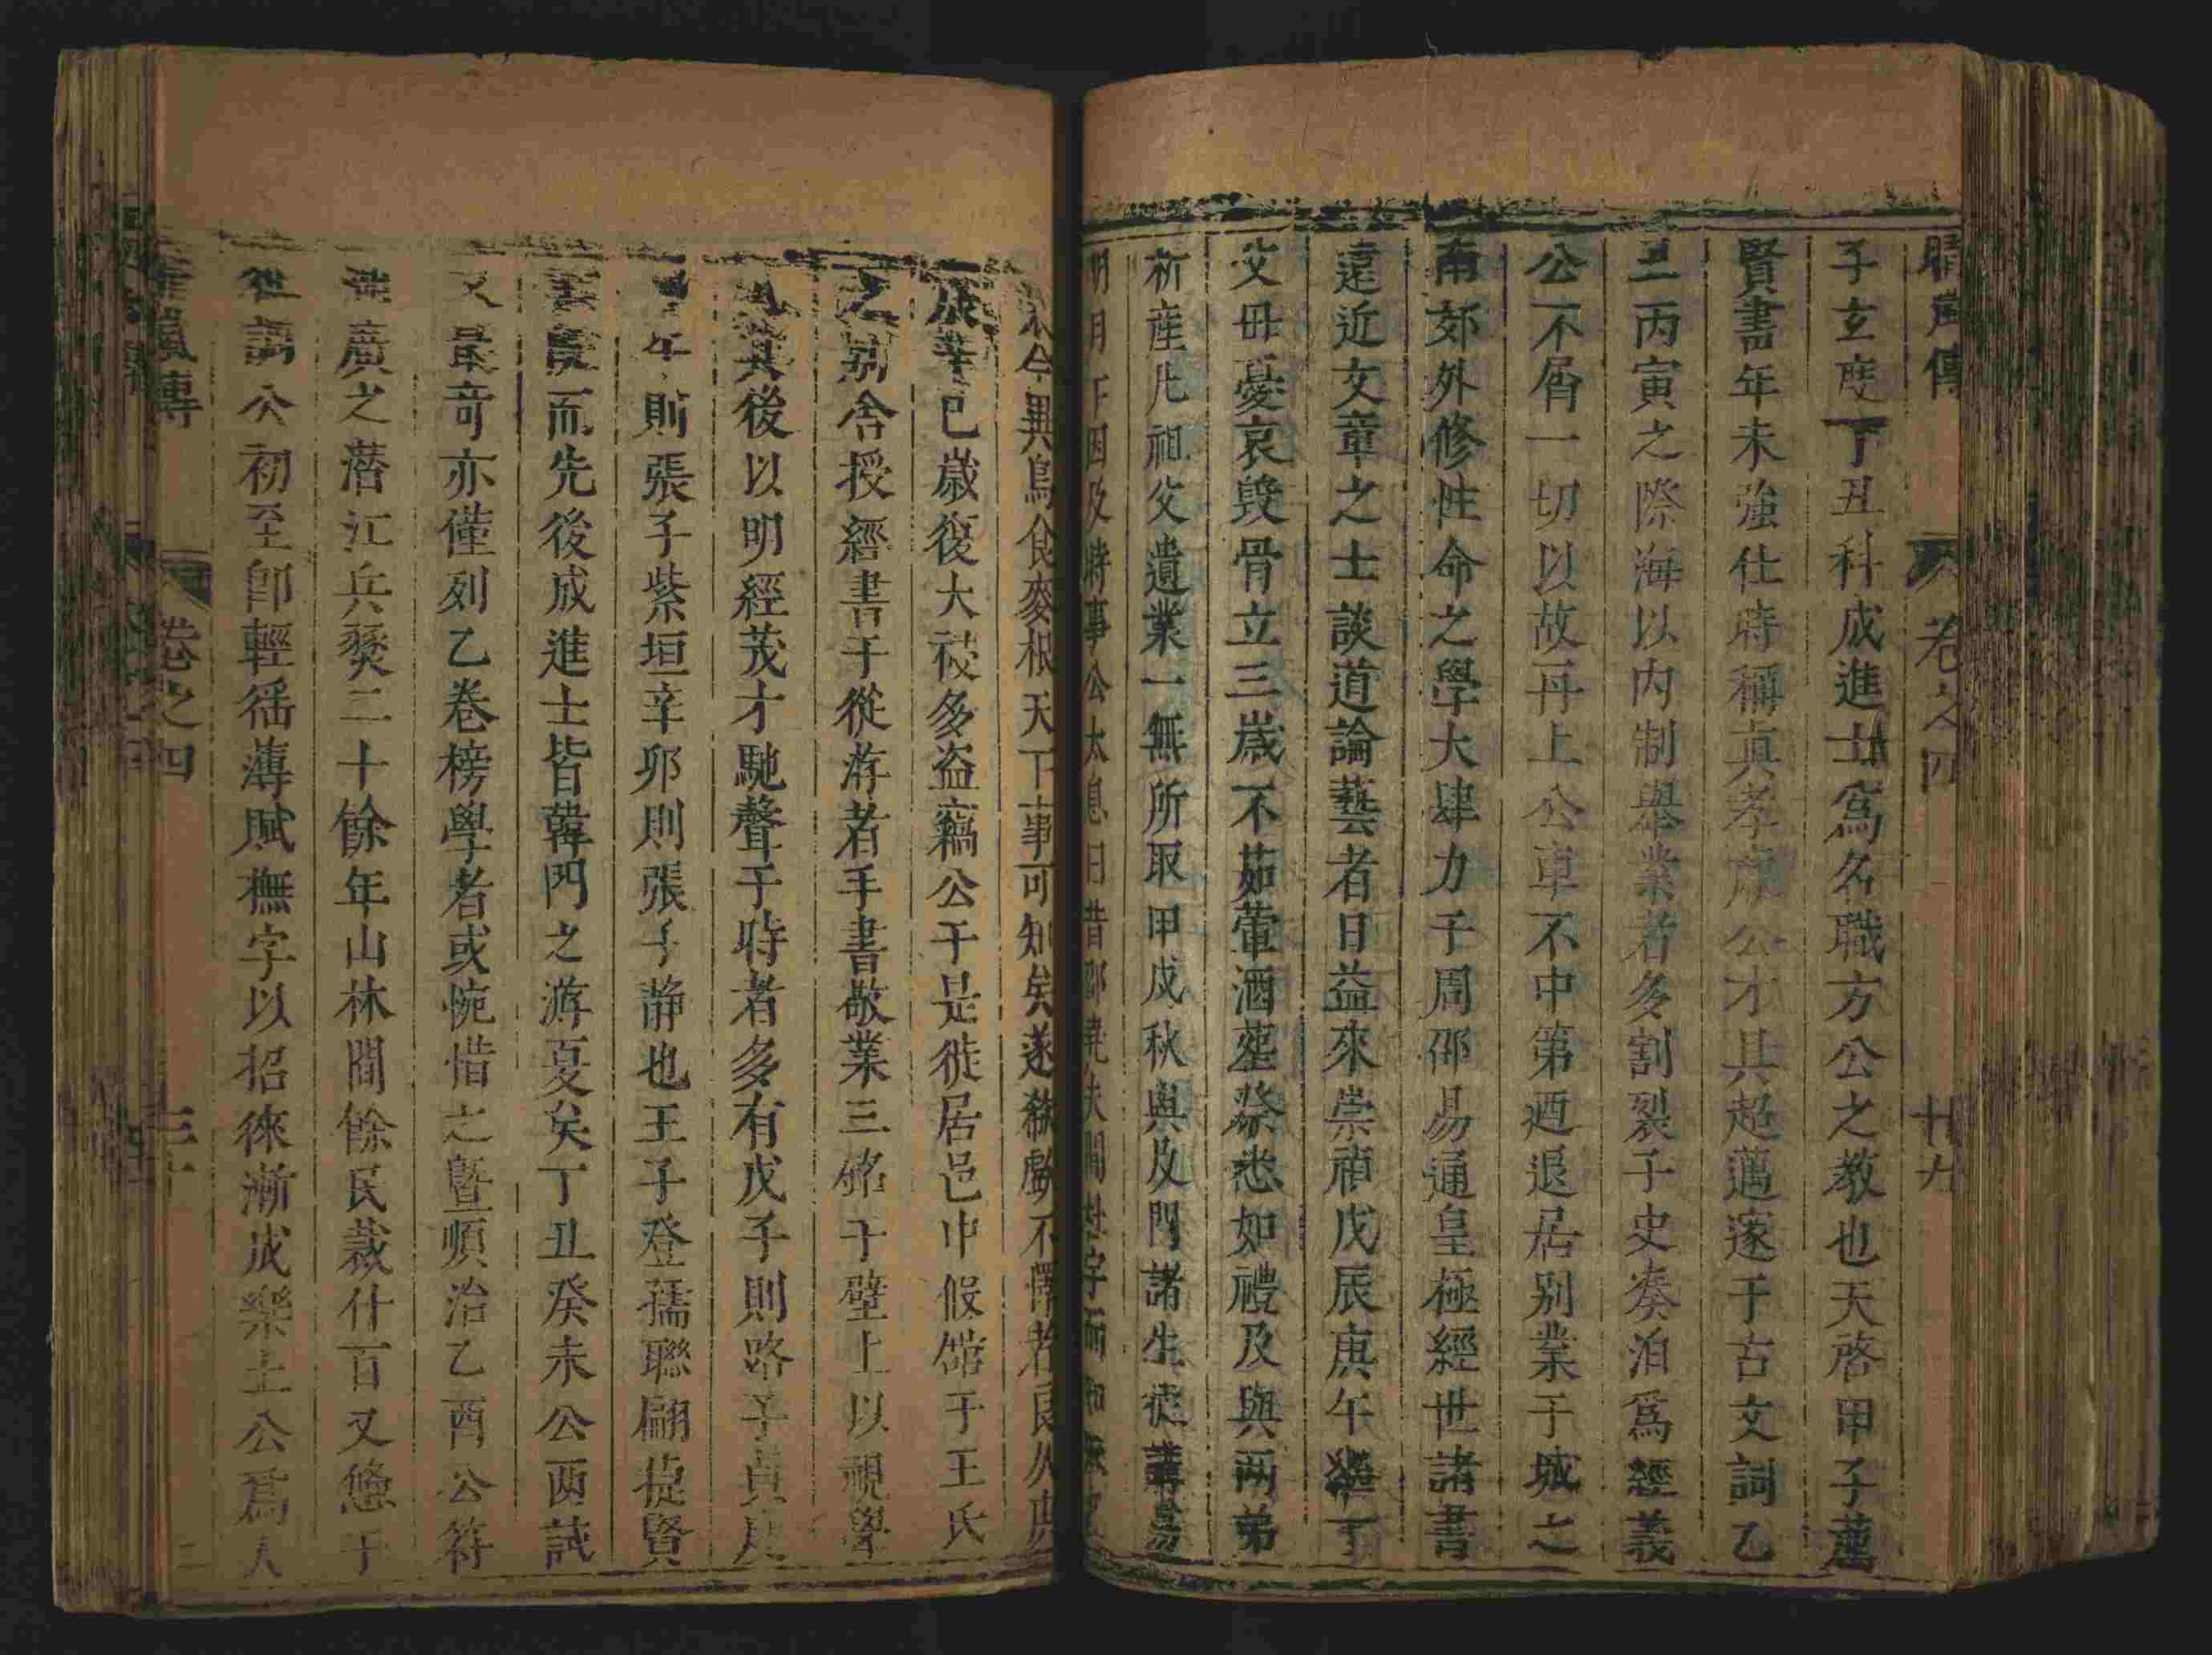 傳 卷之四 十九
子玄度丁丑科成進士為名職方公之教也天啓甲子薦
賢書年未強仕時稱真孝廉公才具超邁邃于古文詞乙
丑丙寅之際海以內制舉業者多割裂子史奏泊為經義
公不屑一切以故再上公車不中第迺退居別業于城之
南郊外修性命之學大肆力于周邵易通皇極經世諸書
遠近文章之士談道論藝者日益來崇禎戊辰庚午繼丁
父母憂哀毀骨立三歲不茹葷酒塟祭悉如禮及與兩弟
析産凡祖父遺業一無所取甲戍秋與及門諸生徒講易
明月下因及時事公太息曰昔邵堯夫聞杜宇而知
異鳥食麥根天下事可知矣遂不懌者良久
已歲復大祲多盗竊公于是徙居邑中假舘于王氏
之別舍授經書于從游者手書敬業三銘于壁上以視學
其後以明經茂才馳聲于時者多有戊子則路子貞
年則張子紫垣辛卯則張子靜也王子登孺聯翩捷賢
書而先後成進士皆韓門之游夏矣丁丑癸未公兩試
又最奇亦僅列乙卷榜學者或惋惜之曁順治乙酉公符
廣之潜江兵燹二十餘年山林間餘民裁什百又憊于
公初至卽輕徭薄賦撫字以招徠漸成樂土公爲人
傳 卷之四 三十